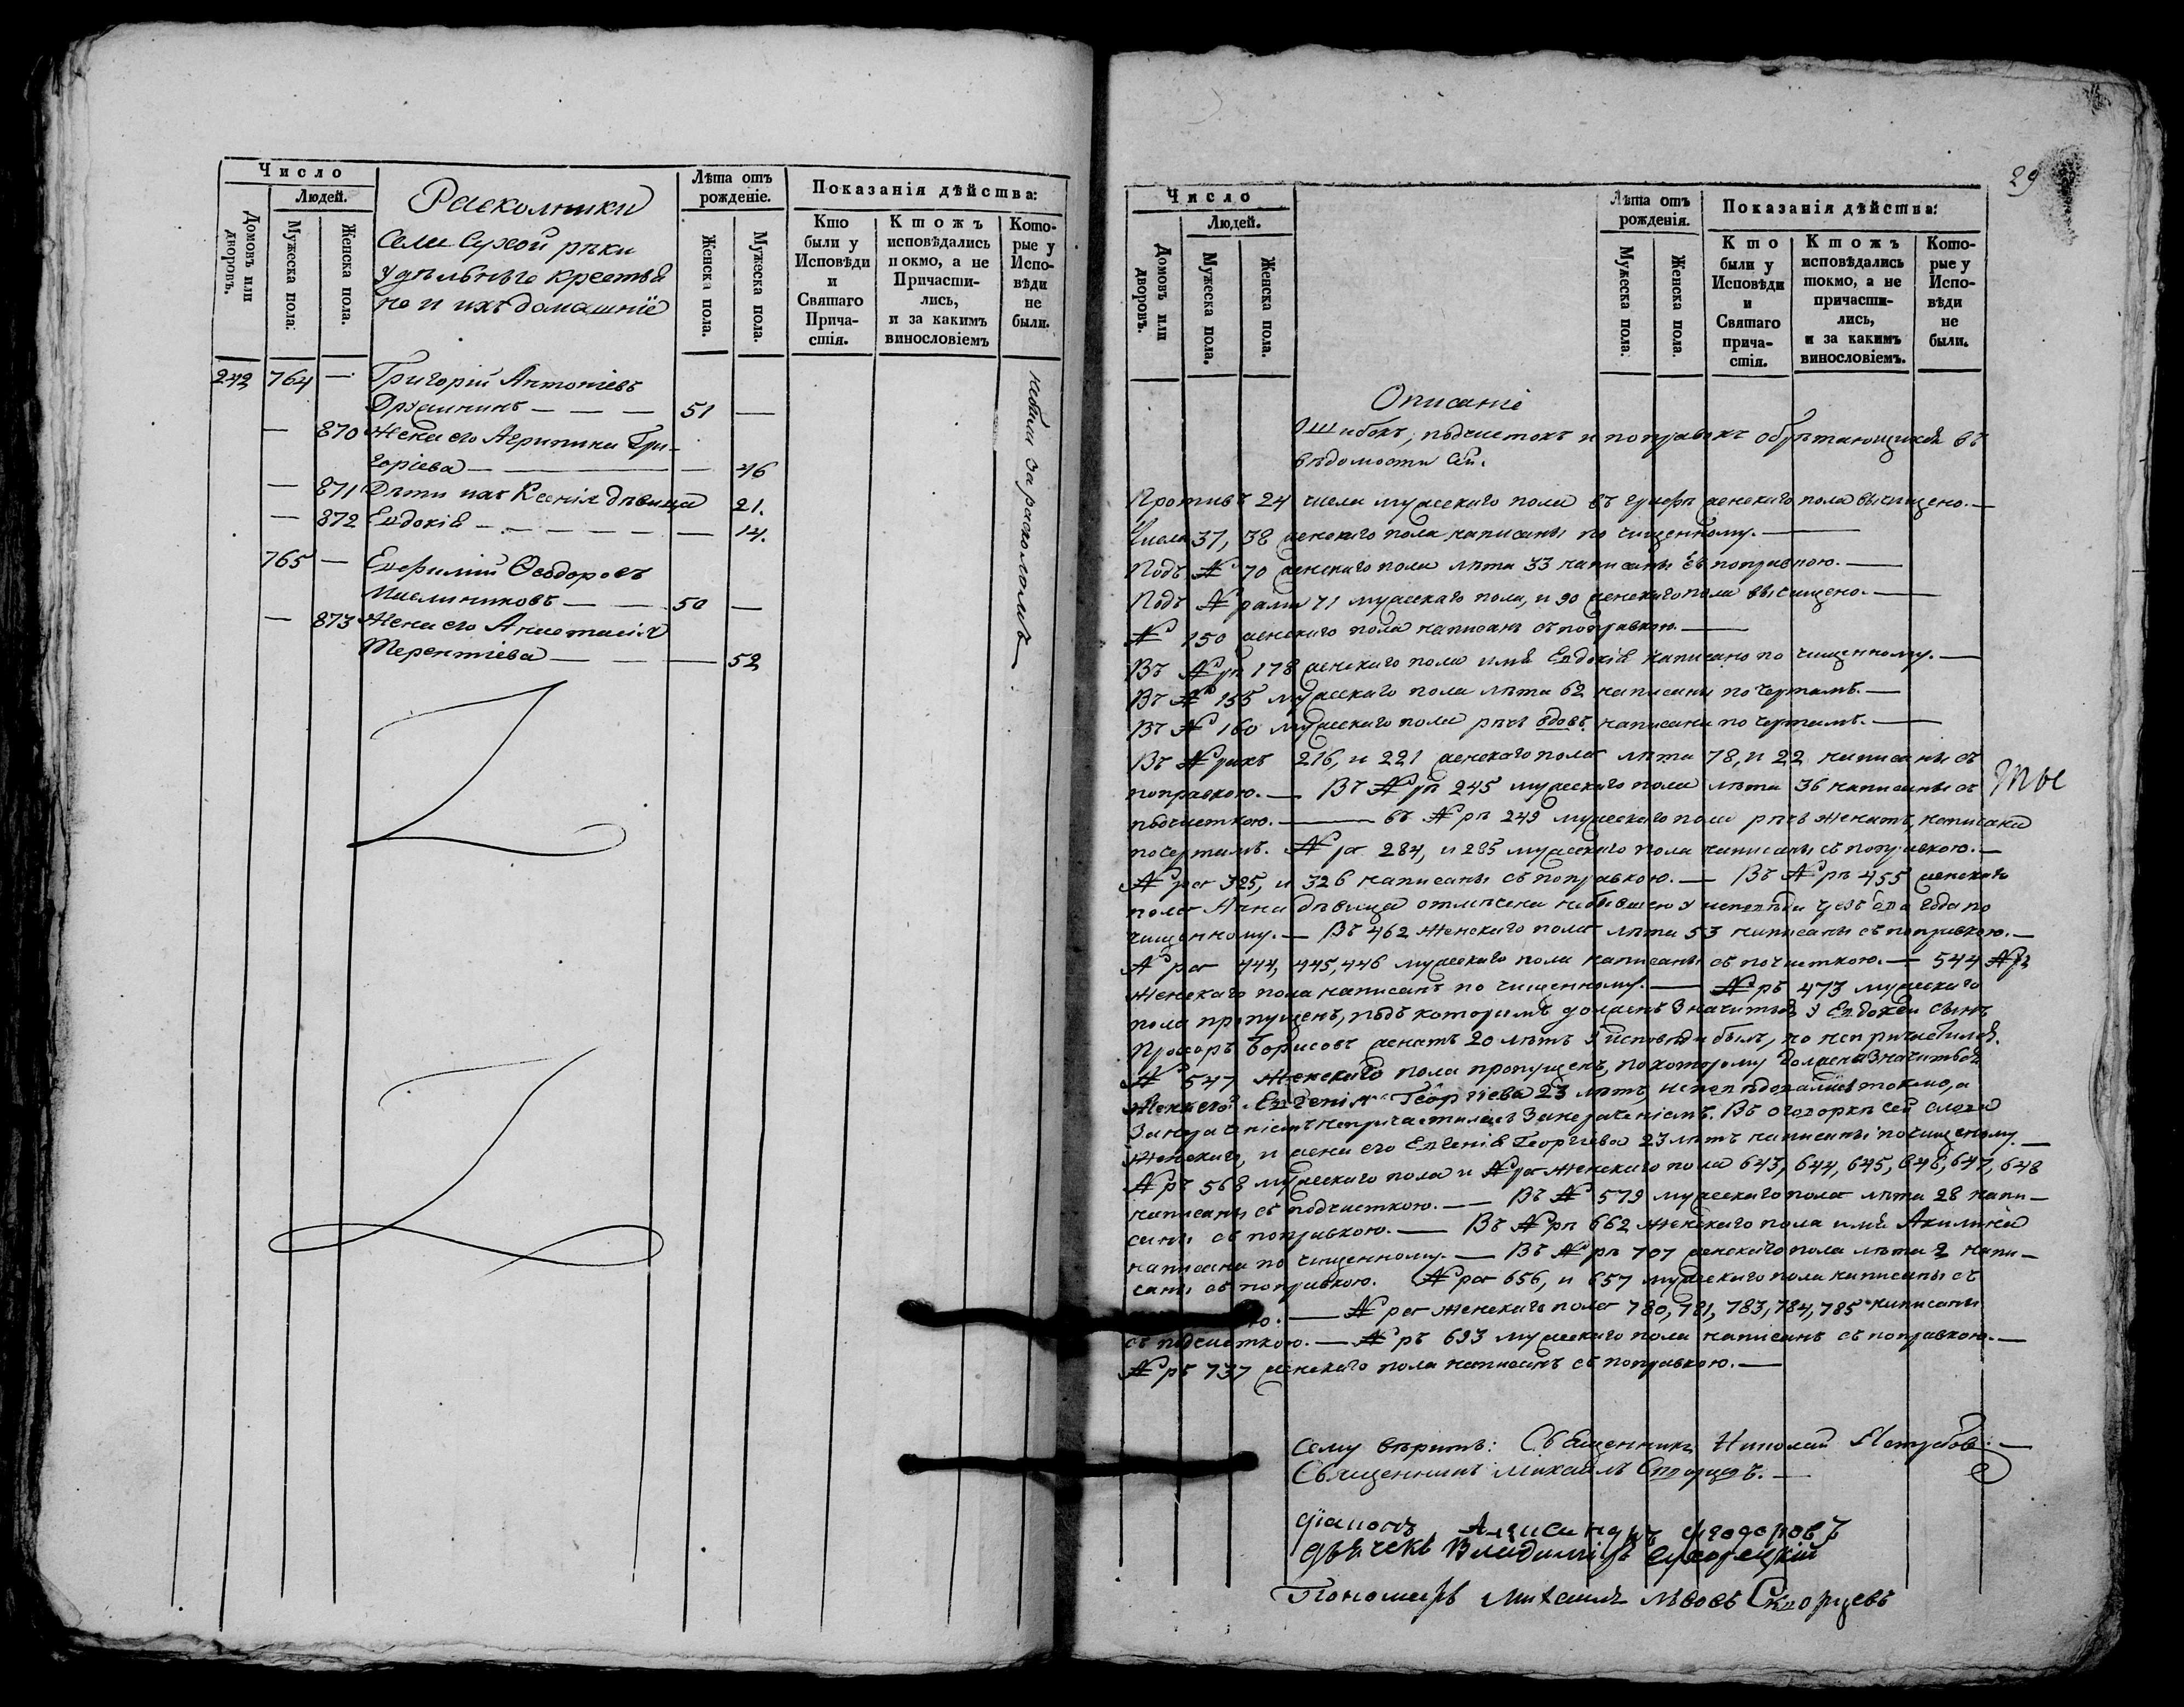 Число
Людей.
Домовъ или дворовъ.
Мужеска пола.
Женска пола.
Раскольники
Села Сухой рѣки
удѣльныго крестья
не и ихъ домашніе
Лѣта отъ рожденіе.
Женска пола.
Мужеска пола.
Показанія дѣйства:
Кто были у Исповѣди и Святаго Причастія.
Ктожъ исповѣдались покмо, а не Причастились, и за какимъ винословіемъ
Которые у Исповѣди не были.
242 764 — Григорій Антоніевъ
51 —
— 870 Жена его Агрипина Гри-
горіева — — 46
— 871 Дѣти ихъ Ксенія дѣвица 21.
— 872 Евдокія — — — — 14.
765 — Евфимій Ѳеодоровъ
Мисльниковъ — — 50 —
— 873 Жена его Анастасія
Терентіева — — — 52
небыли за расколомъ
29
Число
Людей.
Домовъ или дворовъ.
Мужеска пола.
Женска пола.
Лѣта отъ рожденія.
Мужеска пола.
Женска пола.
Показанія дѣйства:
Кто были у Исповѣди и Святаго причастія.
Ктожъ исповѣдались токмо, а не причастились, и за какимъ винословіемъ.
Которые у Исповѣди не были.
Описаніе
Ошибокъ, подчистокъ и поправокъ обрѣтающихся въ
вѣдомости сей.
Противъ 24 числа мужескаго пола въ графѣ женскаго пола вычищено. —
Числа 37, 38 женскаго пола написаны по чищенному. —
Подъ № 70 женскаго пола лѣта 33 написаны съ поправкою. —
Подъ №рами 71 мужескаго пола, и 90 женскаго пола вычищено. —
№ 150 женскаго пола написанъ съ поправкою. —
Въ №рѣ 178 женскаго пола имя Евдокія написано по чищенному. —
Въ № 155 мужескаго пола лѣта 62 написаны по чертамъ. —
Въ № 160 мужескаго пола рѣчь вдовъ написана по чертамъ. —
Въ №рахъ 216, и 221 женскаго пола лѣта 78, и 22 написаны съ
поправкою. — Въ №рѣ 245 мужескаго пола лѣта 36 написаны съ
подчисткою. — въ №рѣ 249 мужескаго пола рѣчь женатъ, написана
по чертамъ. №ра 284, и 285 мужескаго пола написаны съ поправкою. —
№ра 325, и 326 написаны съ поправкою. — Въ №рѣ 455 женскаго
пола Анна дѣвица отмѣчена небывшею у исповѣди года по
чищенному. — Въ 462 женскаго пола лѣта 53 написаны съ поправкою. —
№ра 444, 445, 446 мужескаго пола написаны съ почисткою. — 544 №ръ
женскаго пола написанъ по чищенному. — №ръ 473 мужескаго
пола пропущенъ, подъ которымъ долженъ значиться у Евдокеи сынъ
Прохоръ Борисовъ женатъ 20 лѣтъ у исповѣди былъ, но не причастился.
№ 547 женскаго пола пропущенъ, по которому должна значиться
жена его Евгенія Георгіева 23 лѣтъ, исповѣдовалась токмо, а
за нераченіемъ не причастилась за нераченіемъ. Въ оговоркѣ сей слова
женскаго, и жена его Евгенія Георгіева 23 лѣтъ написаны по чищеному. —
№ръ 568 мужескаго пола и №ра женскаго пола 643, 644, 645, 646, 647, 648
написаны съ подчисткою. — Въ № 579 мужескаго пола лѣта 28 напи-
саны съ поправкою. — Въ №рѣ 662 женскаго пола имя Акилина
написана по чищенному. — Въ №рѣ 707 женскаго пола лѣта 2 напи-
саны съ поправкою. №ра 656, и 657 мужескаго пола написаны съ
ю. — №ра женскаго пола 780, 781, 783, 784, 785 написаны
съ подчисткою. — №ръ 693 мужескаго пола написанъ съ поправкою. —
№ръ 737 женскаго пола написанъ съ поправкою. —
Сему вѣритъ: Священникъ Николай
Священникъ Михаилъ Скворцовъ. —
Діаконъ Александръ Ѳеодоровъ
Дьячекъ Владиміръ Сухорецкій
Пономарь Михаилъ Львовъ Скворцевъ